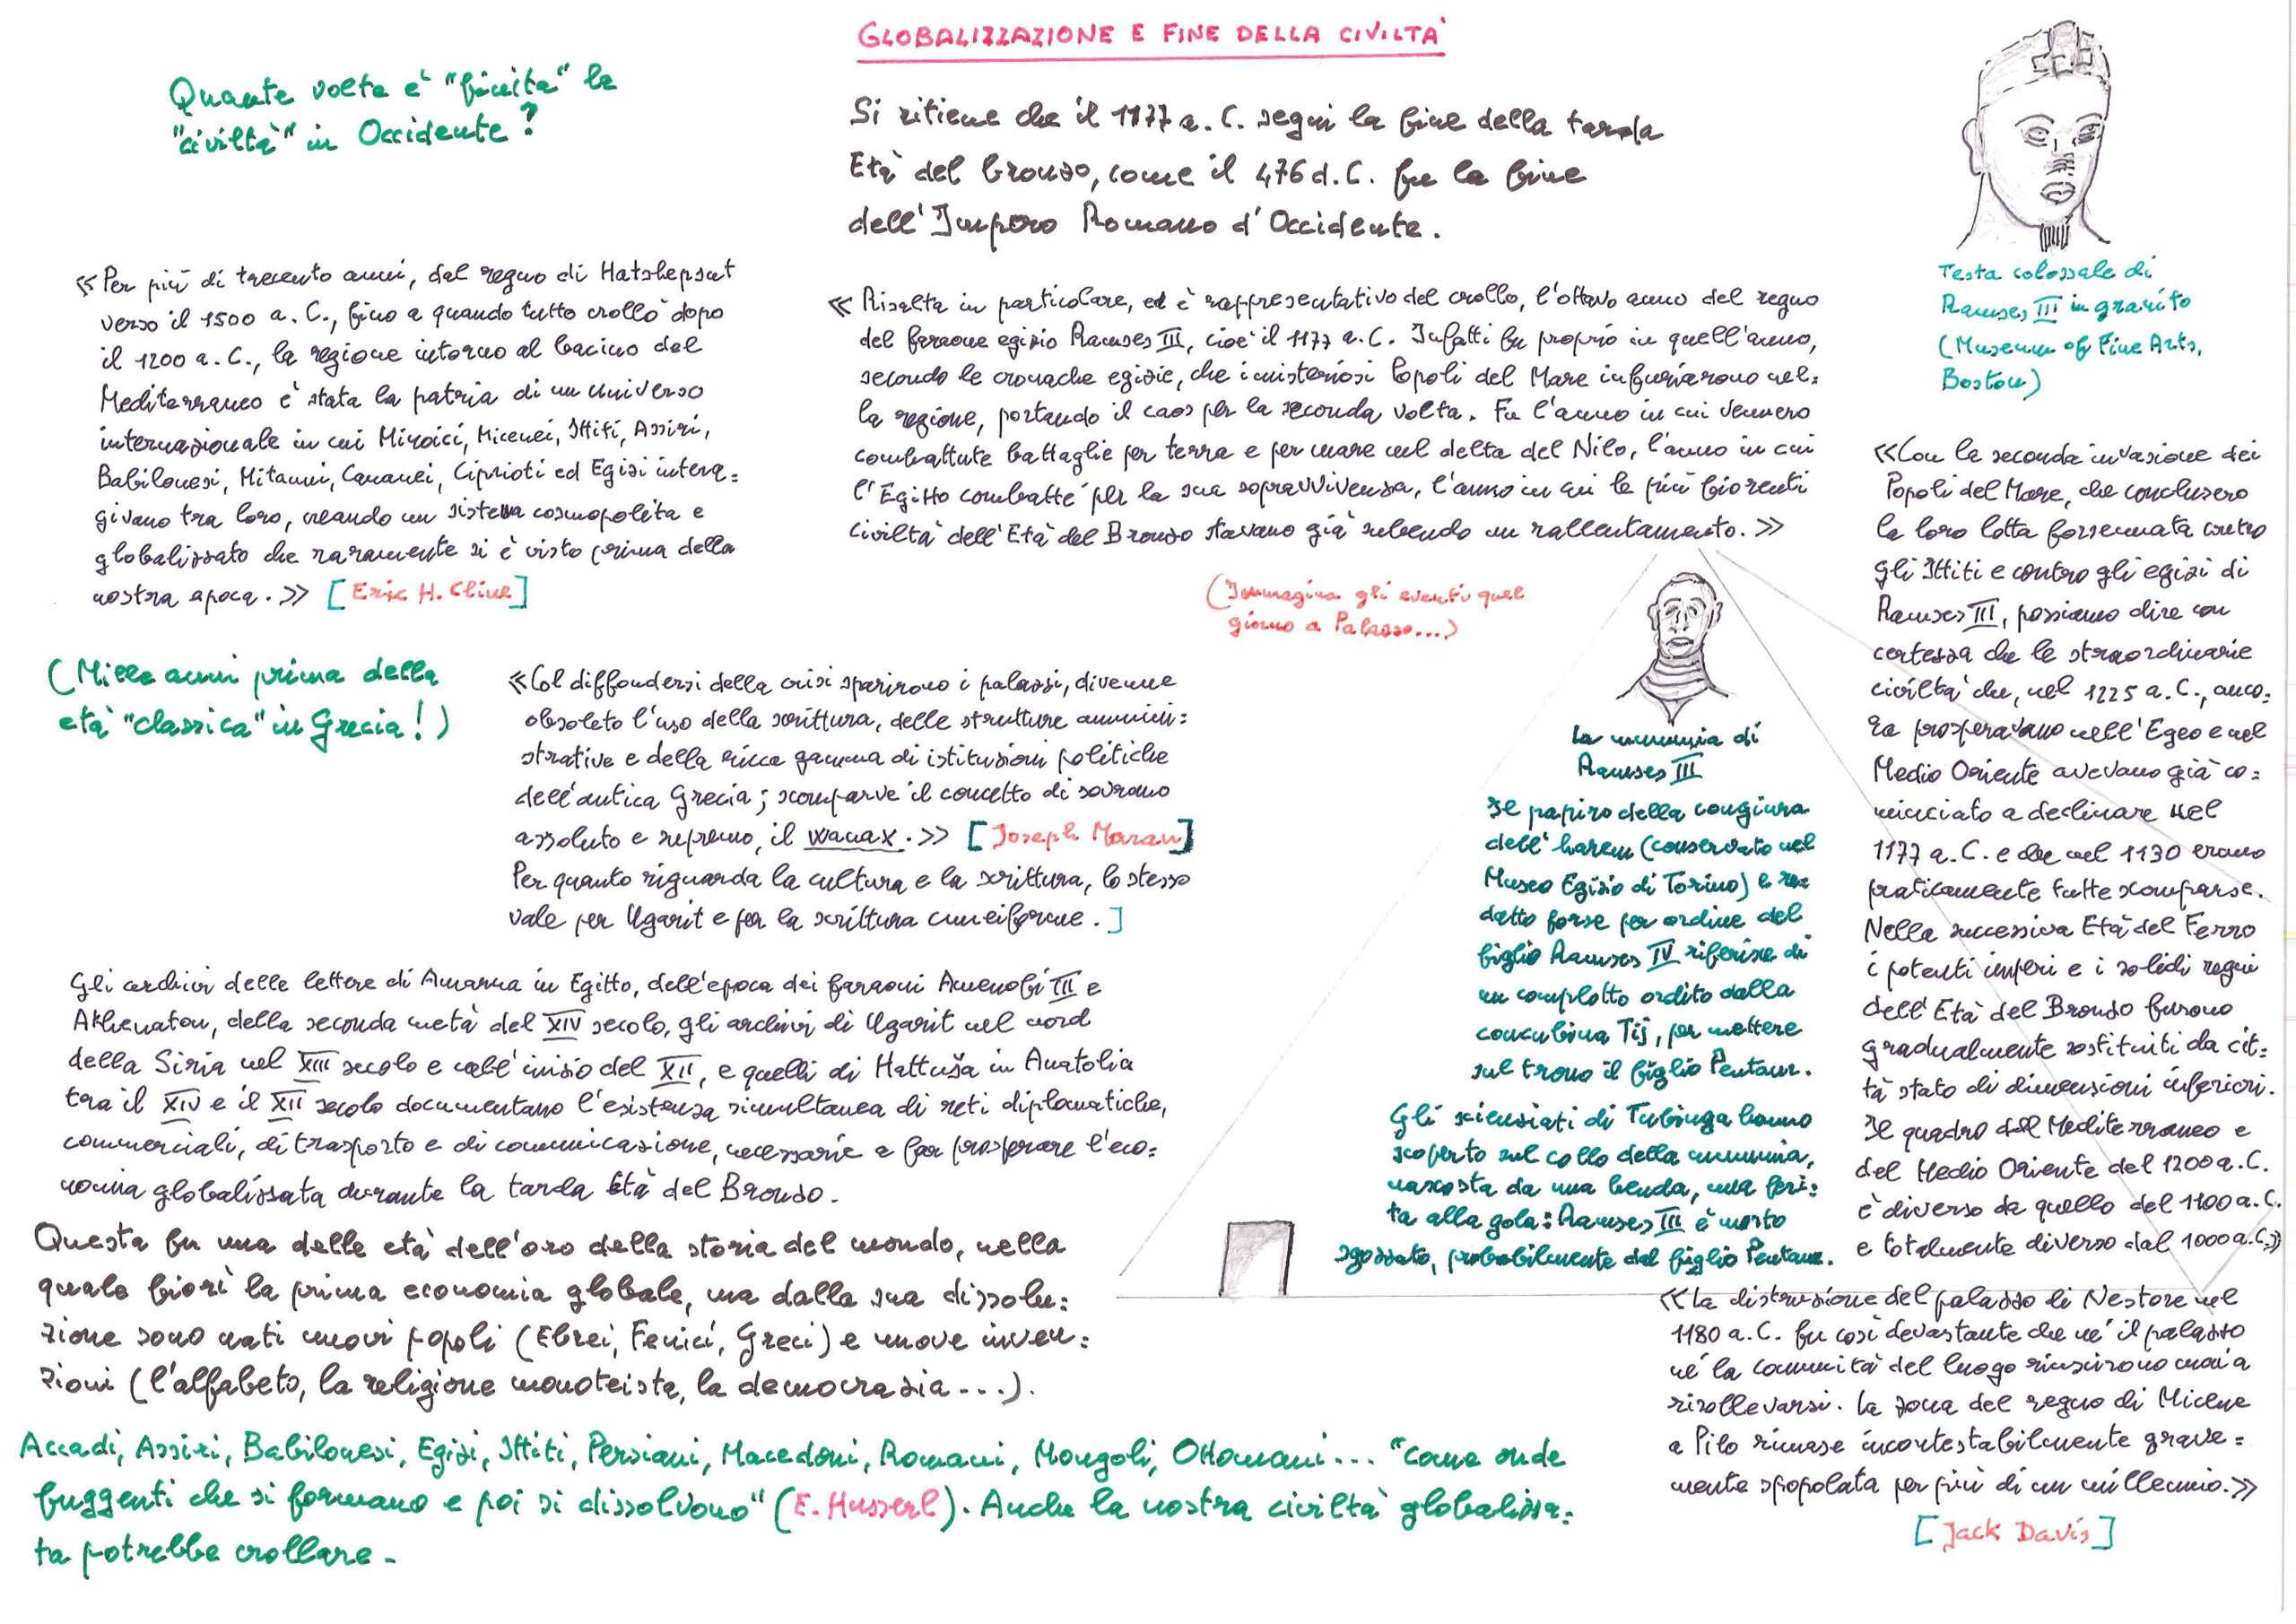 GLOBALIZZAZIONE E FINE DELLA CIVILTA'
Quante volte è "finita" la
"civiltà" in Occidente?
Si ritiene che il 1177 a.C. segni la fine della tarda
Età del bronzo, come il 476 d.C. fu la fine
dell'Impero Romano d'Occidente.
«Per più di trecento anni, dal regno di Hatshepsut
verso il 1500 a.C., fino a quando tutto crollò dopo
il 1200 a.C., la regione intorno al bacino del
Mediterraneo è stata la patria di un universo
internazionale in cui Minoici, Micenei, Ittiti, Assiri,
Babilonesi, Mitanni, Cananei, Ciprioti ed Egizi intera=
givano tra loro, creando un sistema cosmopolita e
globalizzato che raramente si è visto prima della
nostra epoca.» [Eric H. Cline]
(Mille anni prima della
età "classica" in Grecia!)
«Risalta in particolare, ed è rappresentativo del crollo, l'ottavo anno del regno
del faraone egizio Ramses III, cioè il 1177 a.C. Infatti fu proprio in quell'anno,
secondo le cronache egizie, che i misteriosi Popoli del Mare infuriarono nel=
la regione, portando il caos per la seconda volta. Fu l'anno in cui vennero
combattute battaglie per terra e per mare nel delta del Nilo, l'anno in cui
l'Egitto combatté per la sua sopravvivenza, l'anno in cui le più fiorenti
civiltà dell'Età del Bronzo stavano già subendo un rallentamento.»
(Immagina gli eventi quel
giorno a Palazzo...)
«Col diffondersi della crisi sparirono i palazzi, divenne
obsoleto l'uso della scrittura, delle strutture ammini=
strative e della ricca gamma di istituzioni politiche
dell'antica Grecia; scomparve il concetto di sovrano
assoluto e supremo, il wanax.» [Joseph Maran]
Per quanto riguarda la cultura e la scrittura, lo stesso
vale per Ugarit e per la scrittura cuneiforme.]
Gli archivi delle lettere di Amarna in Egitto, dell'epoca dei faraoni Amenofi III e
Akhenaton, della seconda metà del XIV secolo, gli archivi di Ugarit nel nord
della Siria nel XIII secolo e nell'inizio del XII, e quelli di Hattuša in Anatolia
tra il XIV e il XII secolo documentano l'esistenza simultanea di reti diplomatiche,
commerciali, di trasporto e di comunicazione, necessarie a far prosperare l'eco=
nomia globalizzata durante la tarda Età del Bronzo.
Questa fu una delle età dell'oro della storia del mondo, nella
quale fiorì la prima economia globale, ma dalla sua dissolu=
zione sono nati nuovi popoli (Ebrei, Fenici, Greci) e nuove inven=
zioni (l'alfabeto, la religione monoteista, la democrazia...).
Accadi, Assiri, Babilonesi, Egizi, Ittiti, Persiani, Macedoni, Romani, Mongoli, Ottomani... "come onde
fuggenti che si formano e poi si dissolvono" (E. Husserl). Anche la nostra civiltà globalizza=
ta potrebbe crollare.
La mummia di
Ramses III
Il papiro della congiura
dell'harem (conservato nel
Museo Egizio di Torino) e re=
datto forse per ordine del
figlio Ramses IV riferisce di
un complotto ordito dalla
concubina Tij, per mettere
sul trono il figlio Pentaur.
Gli scienziati di Tubinga hanno
scoperto sul collo della mummia,
nascosta da una benda, una feri=
ta alla gola: Ramses III è morto
sgozzato, probabilmente dal figlio Pentaur.
Testa colossale di
Ramses III in granito
(Museum of Fine Arts,
Boston)
«Con la seconda invasione dei
Popoli del Mare, che conclusero
la loro lotta forsennata contro
gli Ittiti e contro gli egizi di
Ramses III, possiamo dire con
certezza che le straordinarie
civiltà che, nel 1225 a.C., anco=
ra prosperavano nell'Egeo e nel
Medio Oriente avevano già co=
minciato a declinare nel
1177 a.C. e che nel 1130 erano
praticamente tutte scomparse.
Nella successiva Età del Ferro
i potenti imperi e i solidi regni
dell'Età del Bronzo furono
gradualmente sostituiti da cit=
tà stato di dimensioni inferiori.
Il quadro del Mediterraneo e
del Medio Oriente del 1200 a.C.
è diverso da quello del 1100 a.C.
e totalmente diverso dal 1000 a.C.»
«La distruzione del palazzo di Nestore nel
1180 a.C. fu così devastante che né il palazzo
né la comunità del luogo riuscirono mai a
risollevarsi. La zona del regno di Micene
a Pilo rimase incontestabilmente grave=
mente spopolata per più di un millennio.»
[Jack Davis]